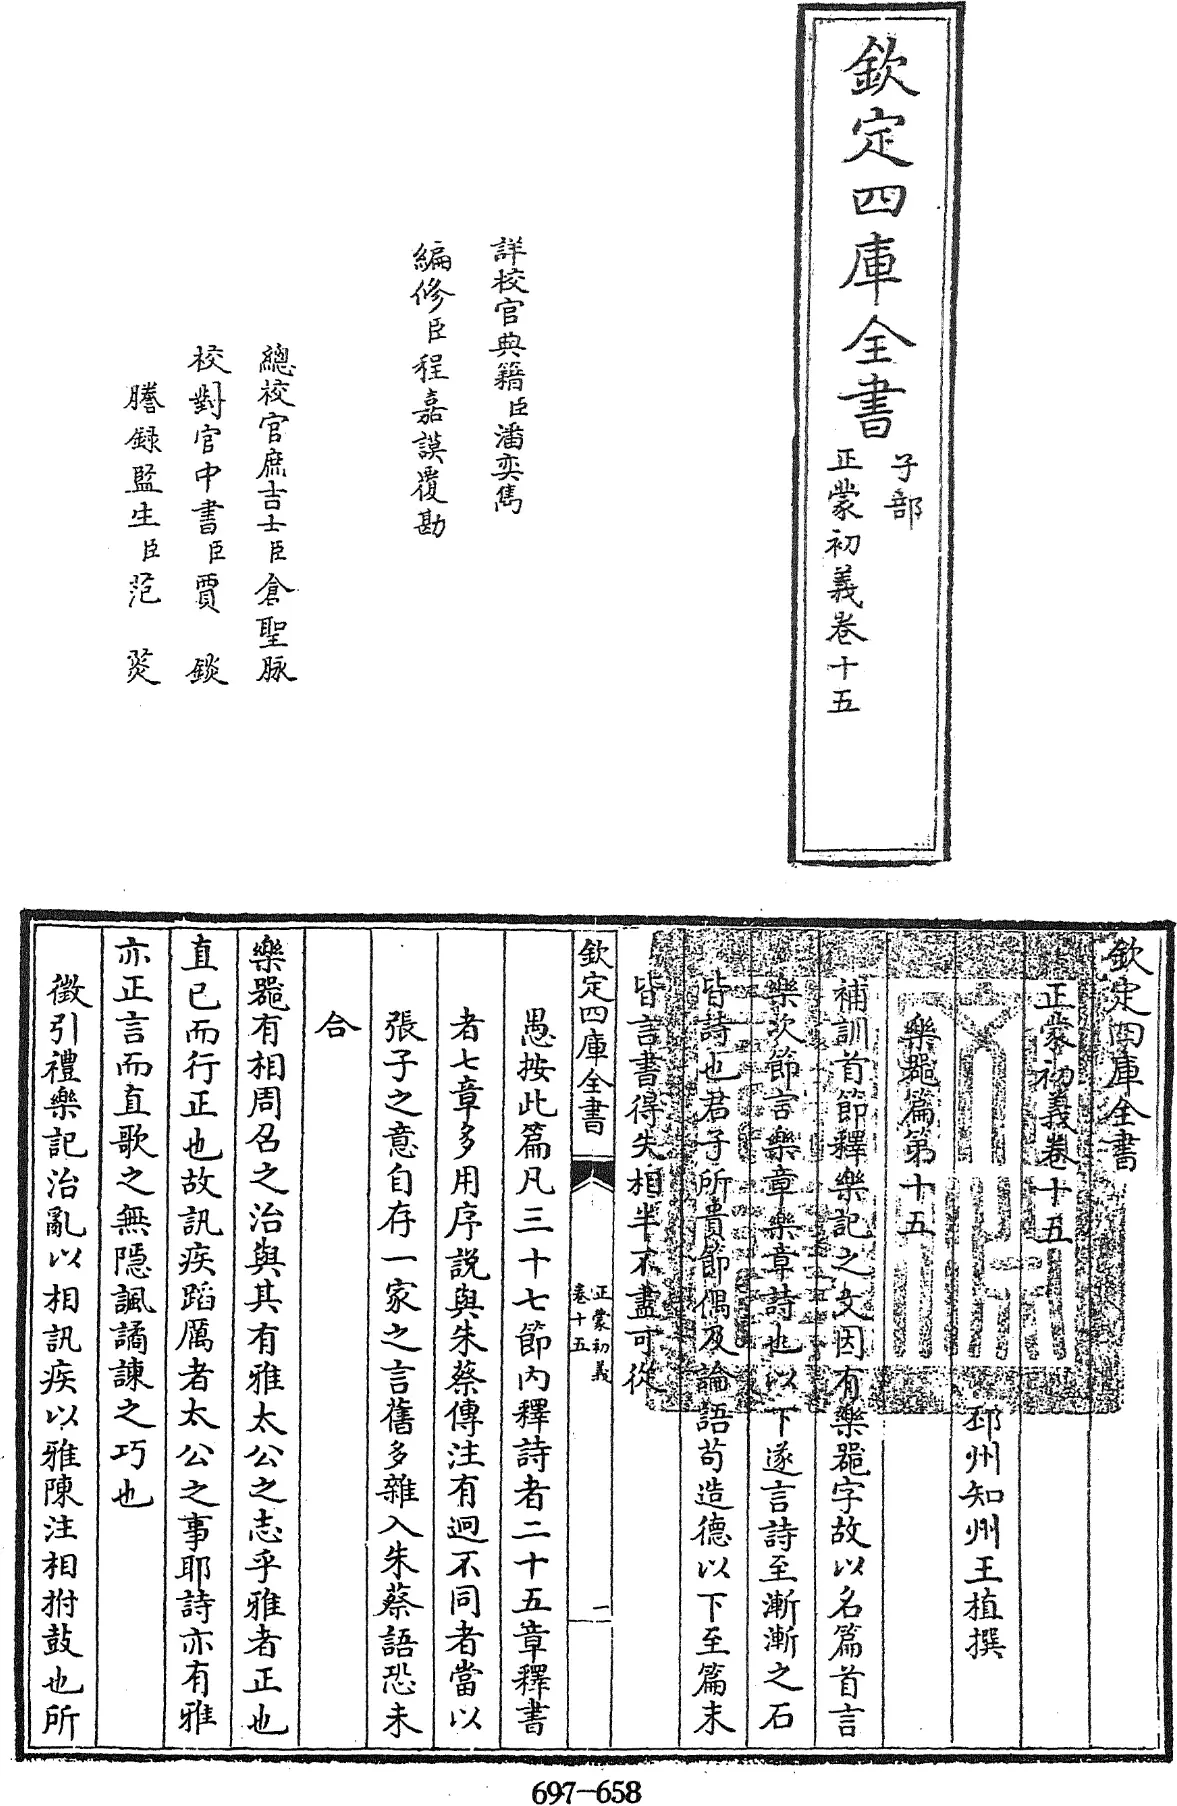 欽定四庫全書
子部
正蒙初義卷十五
詳校官典籍臣潘奕雋
編修臣程嘉謨覆勘
總校官庶吉士臣倉聖脉
校對官中書臣賈錟
謄録監生臣范熒
欽定四庫全書
正蒙初義卷十五
邳州知州王植撰
樂器篇第十五
補訓首節釋樂記之文因有樂器字故以名篇首言
樂次節言樂章樂章詩也以下遂言詩至漸漸之石
皆詩也君子所貴節偶及論語苟造德以下至篇末
皆言書得失相半不盡可從
欽定四庫全書
正蒙初義
卷十五
一
愚按此篇凡三十七節内釋詩者二十五章釋書
者七章多用序説與朱蔡傳注有迥不同者當以
張子之意自存一家之言舊多雜入朱蔡語恐未
合
樂器有相周召之治與其有雅太公之志乎雅者正也
直已而行正也故訊疾蹈厲者太公之事耶詩亦有雅
亦正言而直歌之無隱諷譎諫之巧也
徵引禮樂記治亂以相訊疾以雅陳注相拊鼓也所
697-658